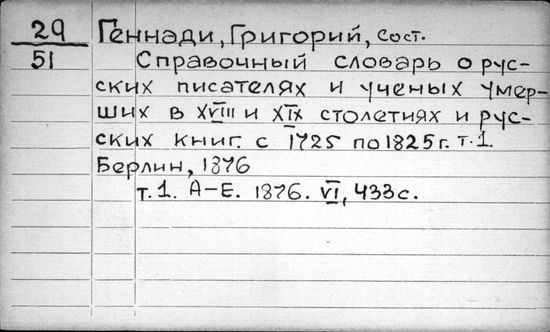 29
51
Геннади, Григорий, сост.
Справочный словарь о рус-
ских писателях и ученых умер-
ших в XVIII и XIX столетиях и рус-
ских книг. с 1725 по 1825 г. т.1.
Берлин, 1876
т.1. А-Е. 1876. VI, 433 с.